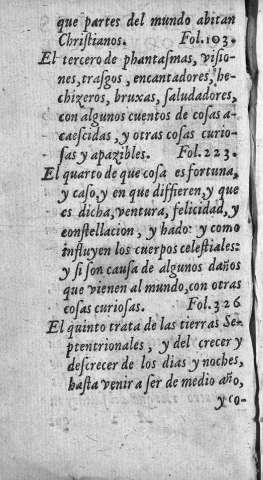 que partes del mundo abitan
Chriſtianos. Fol.103.
El tercero de phantaſmas, viſio-
nes, traſgos, encantadores, he-
chizeros, bruxas, ſaludadores,
con algunos cuentos de coſas a-
caeſcidas, y otras coſas curio-
ſas y apazibles. Fol.223.
El quarto de que coſa es fortuna,
y caſo, y en que differen, y que
es dicha, ventura, felicidad, y
conſtellacion, y hado: y como
influyen los cuerpos celeſtiales:
y ſi ſon cauſa de algunos daños
que vienen al mundo, con otras
coſas curioſas. Fol.326
El quinto trata de las tierras Se-
ptentrionales, y del crecer y
deſcrecer de los dias y noches,
haſta venir a ſer de medio año,
y co-